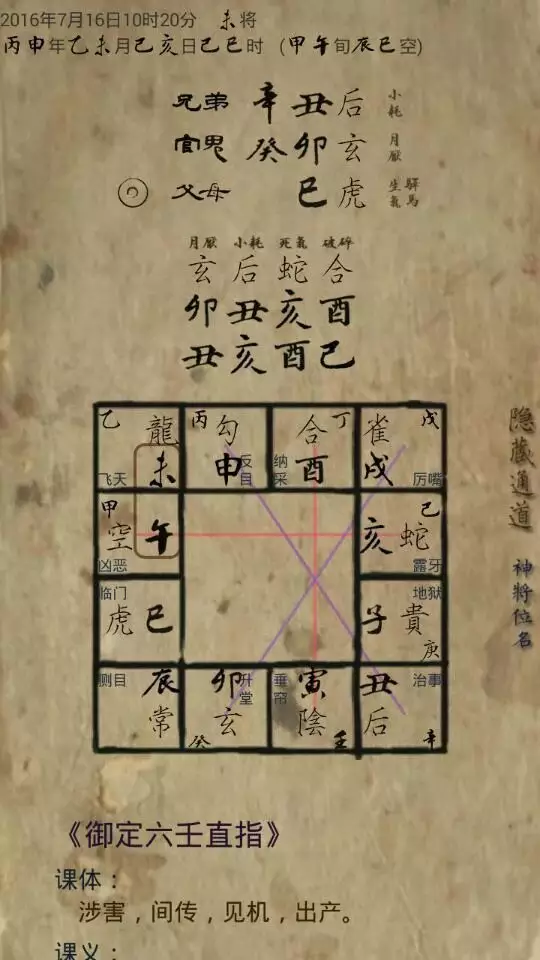 2016年7月16日10时20分 未将
丙申年乙未月己亥日己巳时 (甲午旬辰巳空)
兄弟 辛丑后 小耗
官鬼 癸卯玄 月厭
父母 巳虎 生氣 驛馬
月厭 小耗 死氣 破碎
玄后蛇合
卯丑亥酉
丑亥酉己
乙 龍 丙 勾 合 丁 雀 戊
飞天 未 申 反目 纳采 酉 戌 厉嘴
甲 己
空 午 亥 蛇
凶恶 露牙
临门 地狱
虎 巳 子 貴
庚
测目 辰 卯 升堂 垂帘 寅 丑 治事
常 玄 陰 后
癸 壬 辛
隐藏通道
神将位名
《御定六壬直指》
课体：
涉害，间传，见机，出产。
课义：